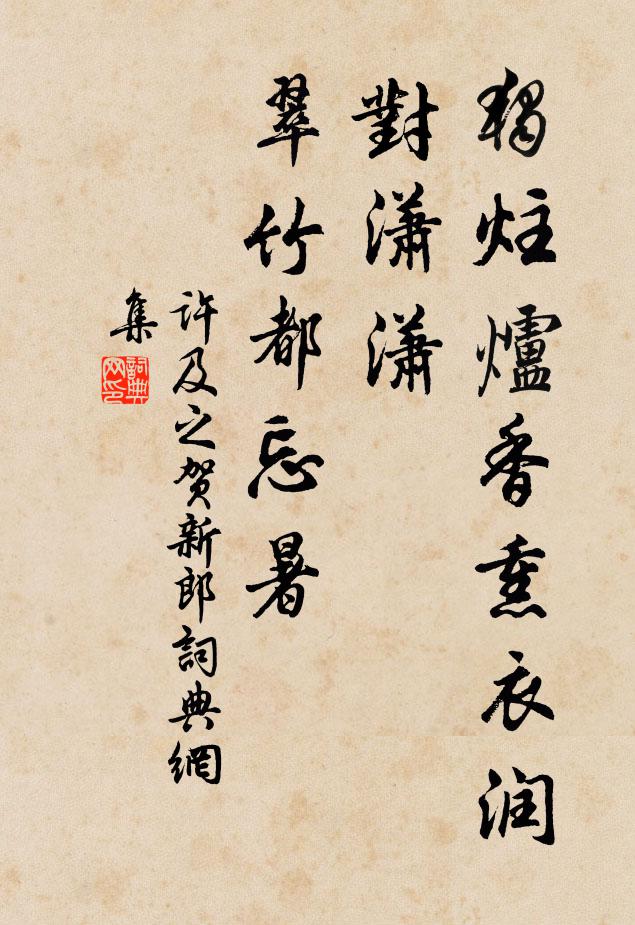 獨炷爐香熏衣润
對瀟瀟
翠竹都忘暑
許及之贺新郎詞典網
集
詞典
网印